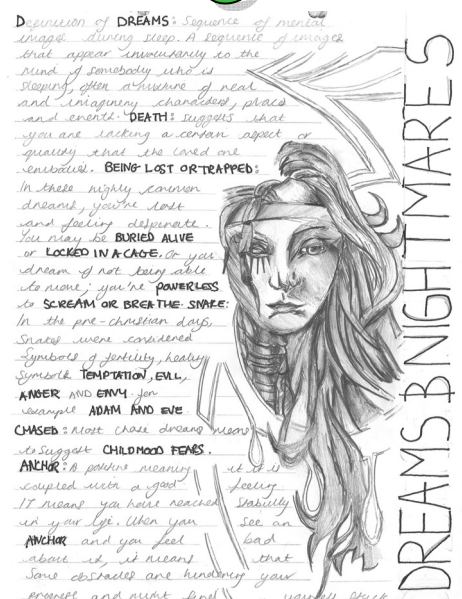 Definition of DREAMS: Sequence of mental
images during sleep. A sequence of images
that appear involuntarily to the
mind of somebody who is
sleeping, often a mixture of real
and imaginery characters, places
and events. DEATH: suggests that
you are lacking a certain aspect or
quality that the loved one
embodied. BEING LOST OR TRAPPED:
In these highly common
dreams, you're lost
and feeling desperate.
You may be BURIED ALIVE
or LOCKED IN A CAGE. Or you
dream of not being able
to move; you're POWERLESS
to SCREAM OR BREATHE. SNAKE:
In the pre-christian days,
Snakes were considered
Symbols of fertility, healing
Symbols TEMPTATION, EVIL,
ANGER AND ENVY. for
example ADAM AND EVE
CHASED: Most chase dreams means
to suggest CHILDHOOD FEARS.
ANCHOR: A positive meaning if it is
coupled with a good feeling
IT means you have reached stability
in your life. When you see an
ANCHOR and you feel bad
about it, it means that
Some obstacles are hindering your
progress and might find yourself stuck
DREAMS & NIGHTMARES